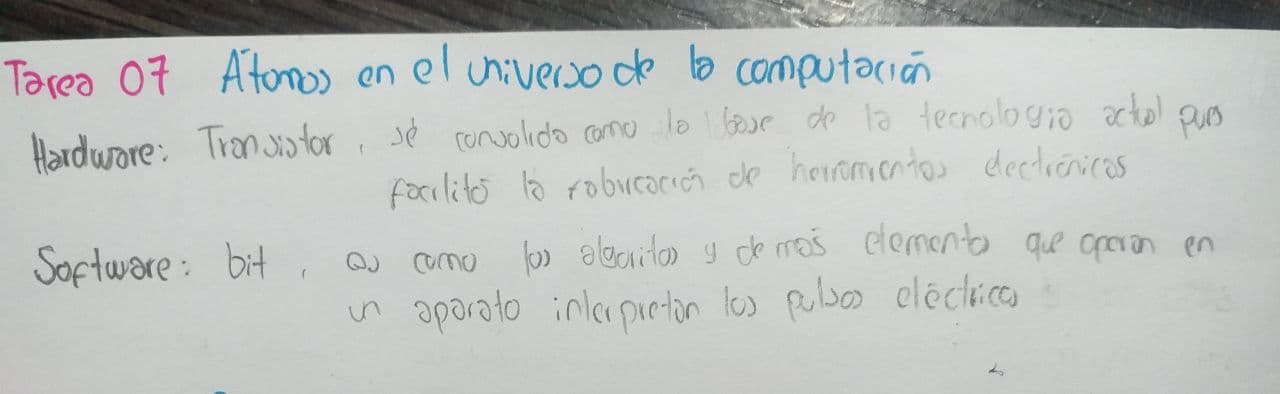 Tarea 07 Átomos en el universo de la computación
Hardware: Transistor, sé consolido como la base de la tecnologia actual pues
facilitó la fabricación de herramientas electrónicas
Software: bit, es como los algoritos y demás elementos que operan en
un aparato interpretan los pulsos eléctricos